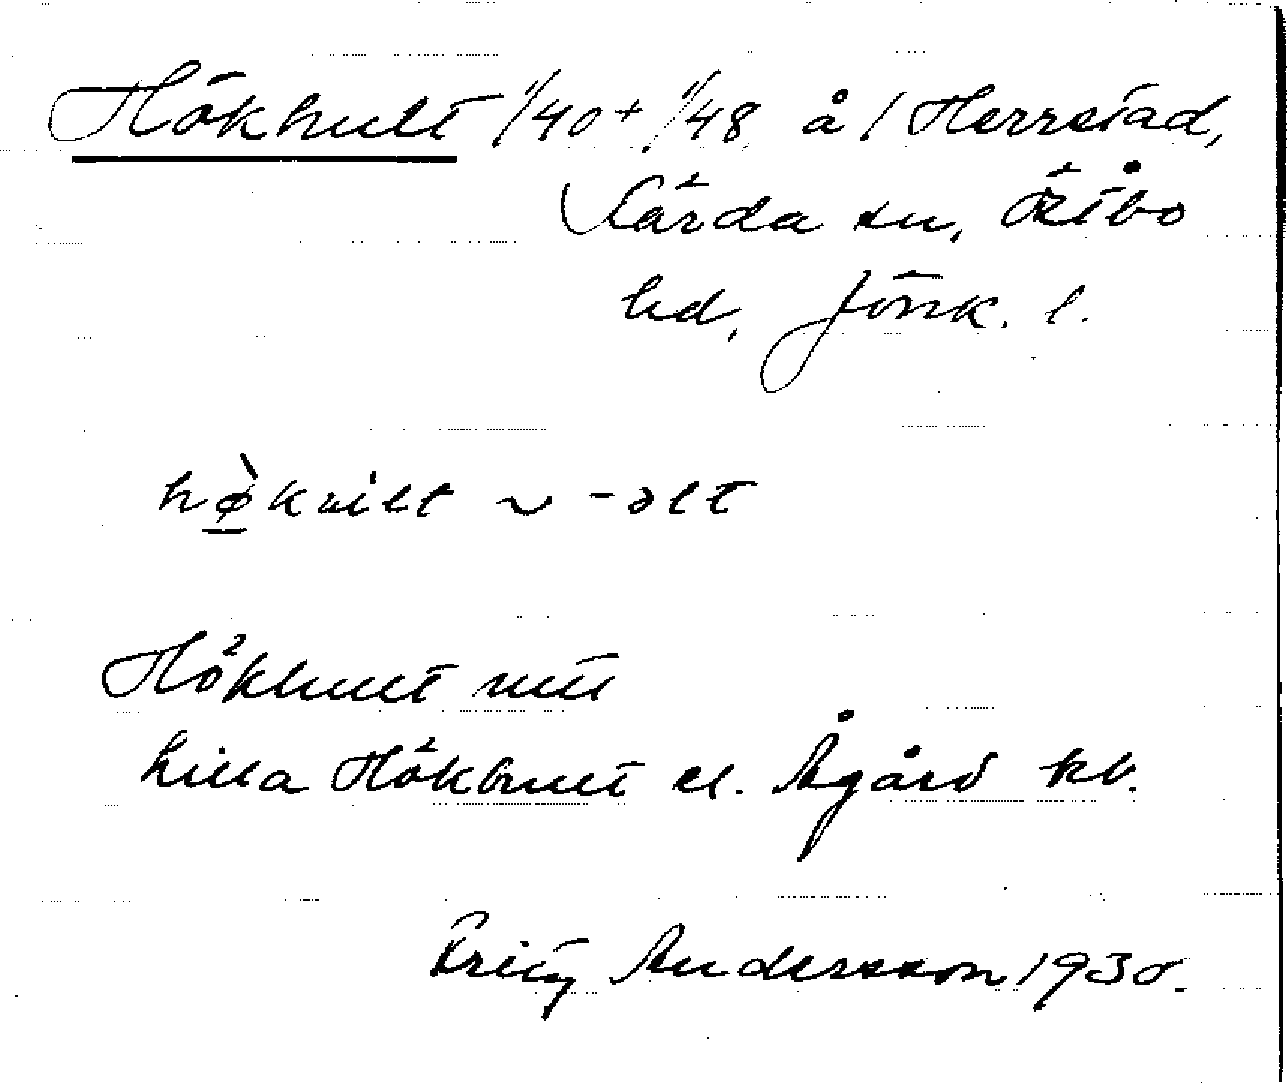 Hökhult 1/40 + 1/48 å 1 Herrstad,
Kärda sn, Östbo
hd, Jönk. l.
hø̀kult ~ -əlt
Hökhult
Lilla Hökhult el. Ågård kb.
Andersson 1930.